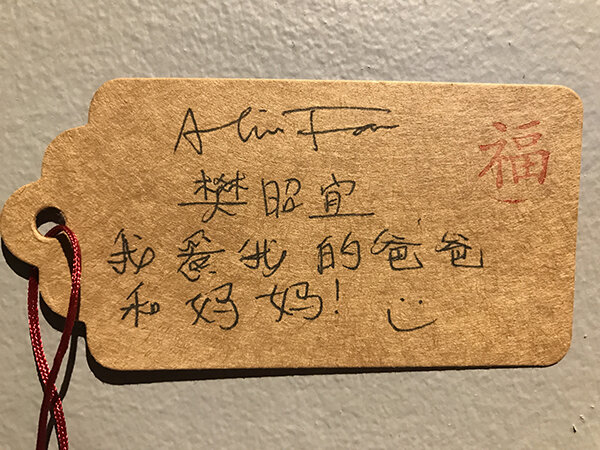 Fan
福
樊昭宜
我爱我的爸爸
和妈妈!